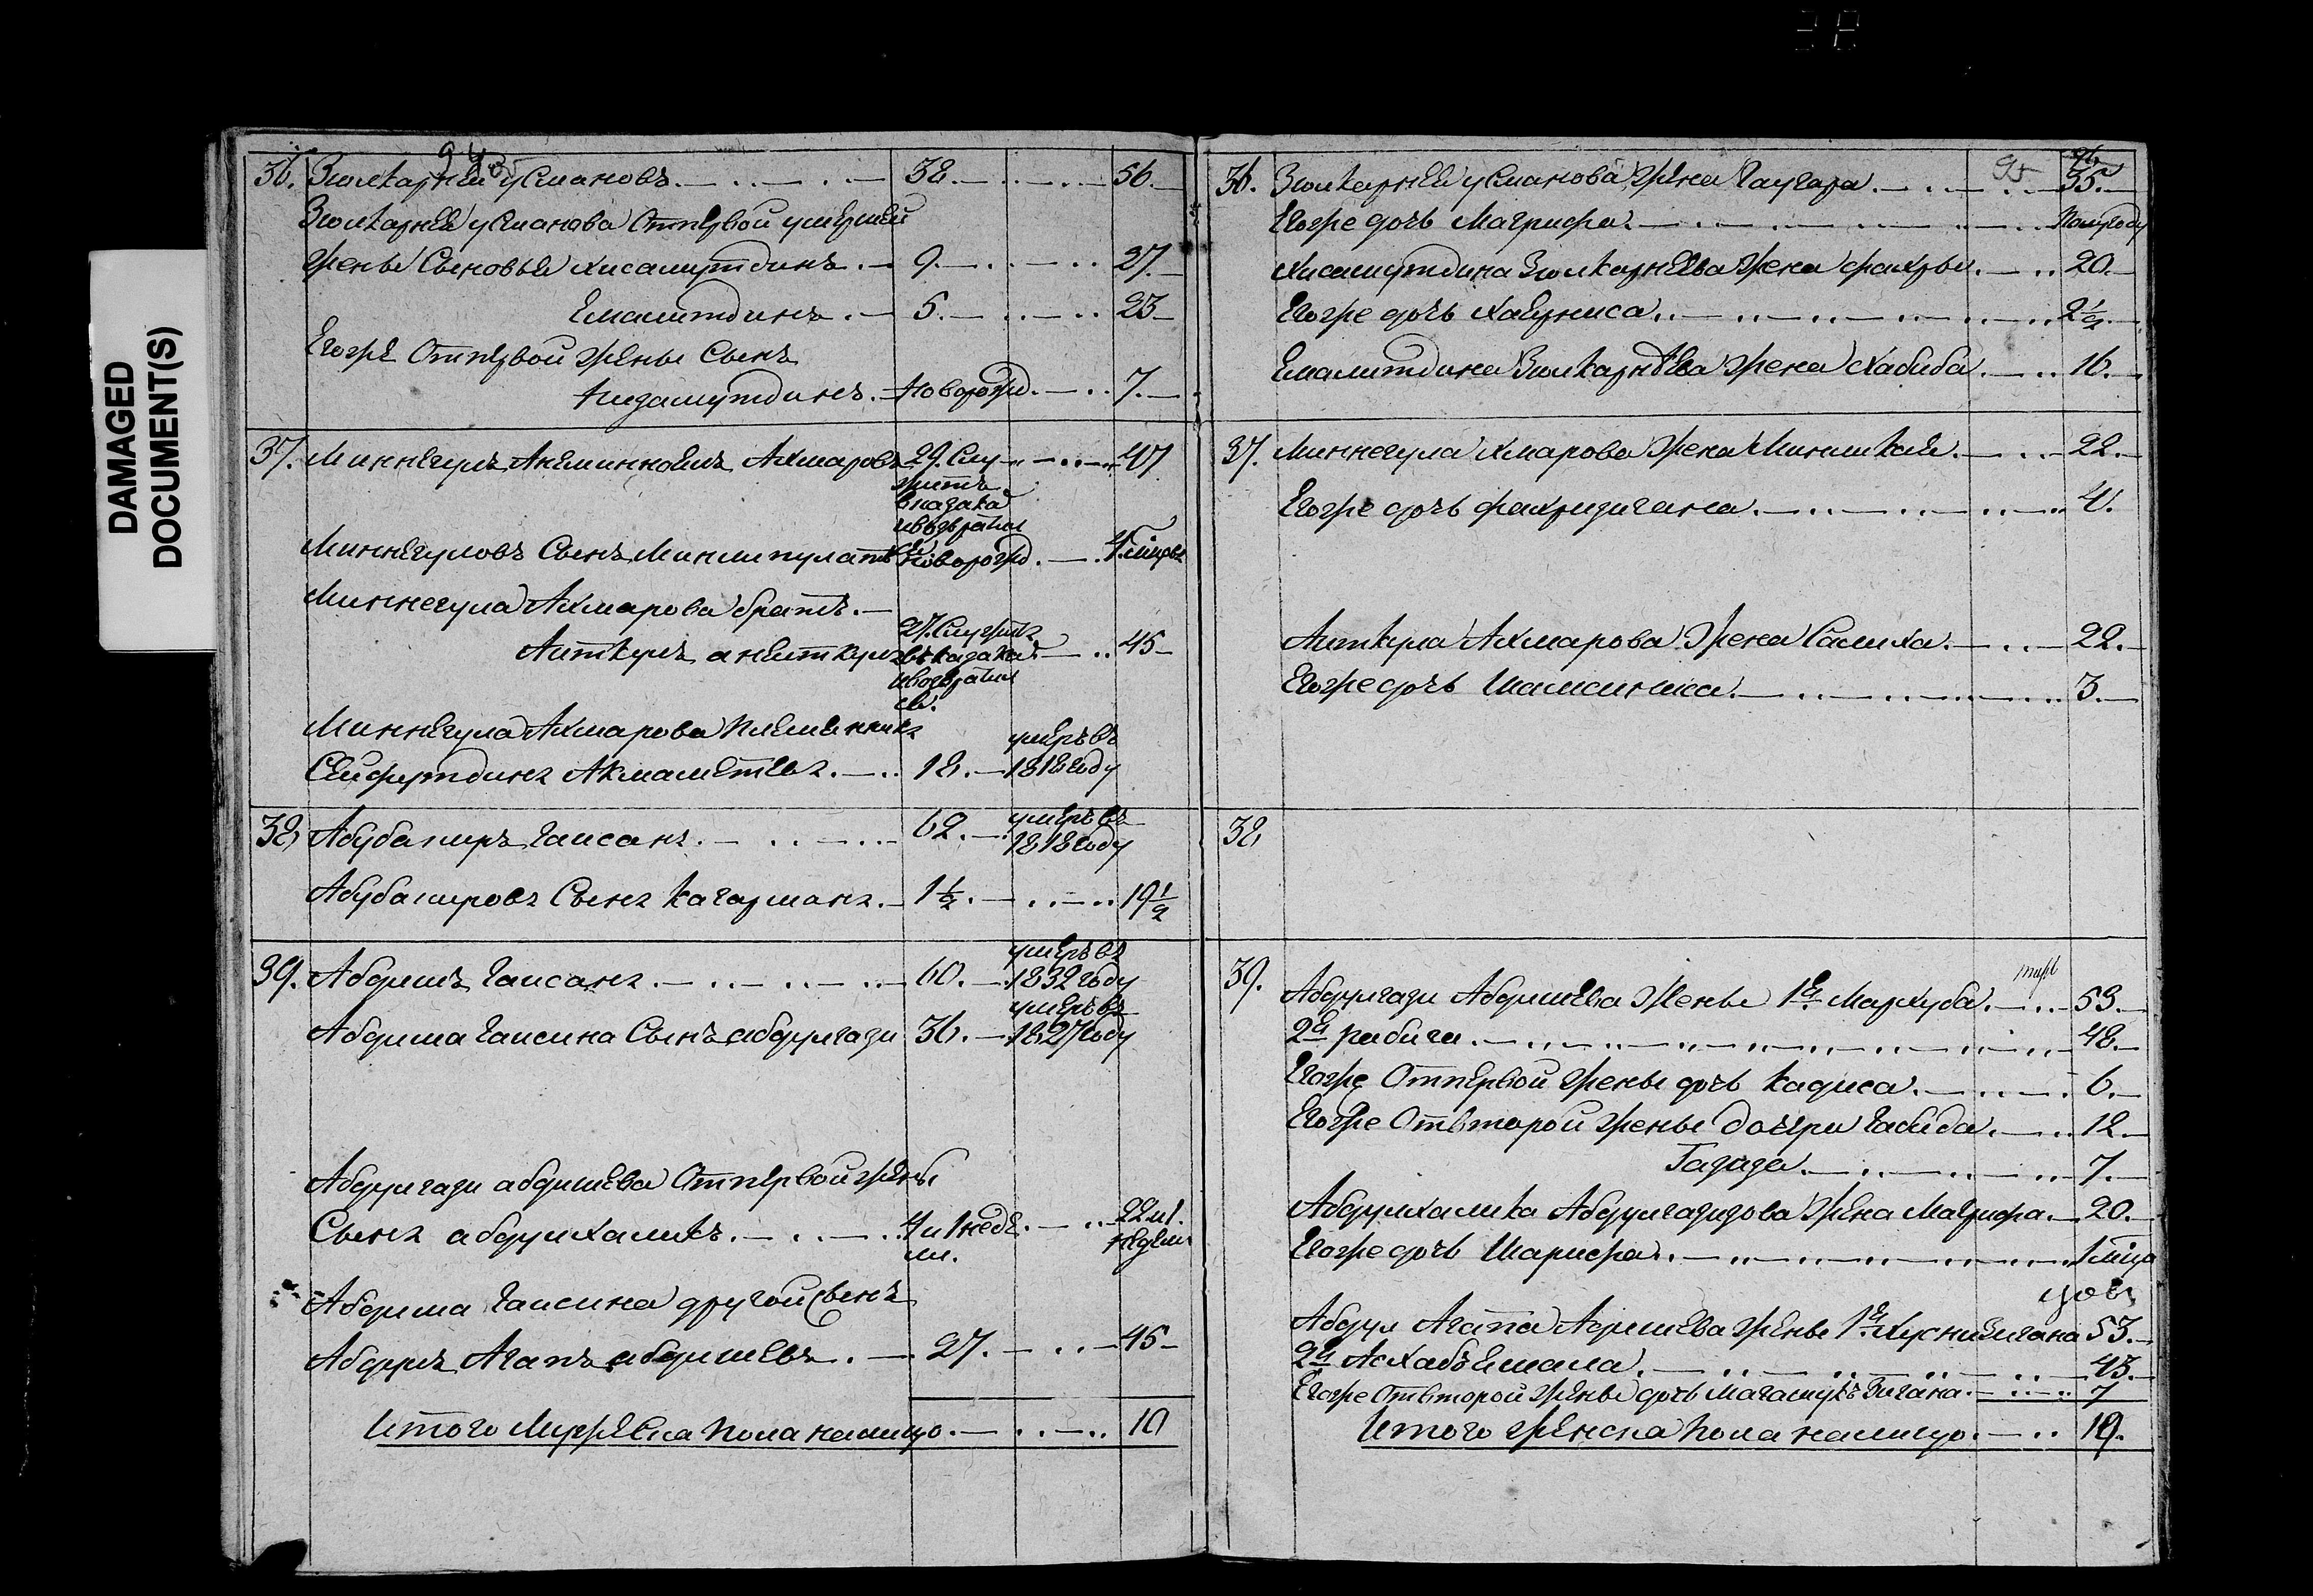 DAMAGED
DOCUMENT(S)
94
36. Зюлкарней Усмановъ 38. 56.
Зюлкарнея Усманова Отпервой умершей
жены Сыновья Хисамутдинъ 9. 27.
Емалитдинъ 5. 23
Егоже Отпервой жены Сынъ
Низамутдинъ новорожд. 7.
37. Миннегулъ Ахмаровъ 29. Слу 47
житъ
вказака
ивозвратил
ся
Миннегуловъ Сынъ Минлипулатъ новорожд.
Миннегула Ахмарова братъ
Аиткулъ 27. Служитъ 45
въказака
ивозвратил
ся.
Миннегула Ахмарова племянникъ
Сейфутдинъ Акмаметевъ 18. умеръ въ
1818 году
38 Абубакиръ Гаисанъ 62. умеръ въ
1818 году
Абубакировъ Сынъ Кагарманъ 1 1/2. 19 1/2
39. Абдишъ Гаисанъ 60. умеръ въ
1832 году
Абдиша Гаисина Сынъ абдулгази 36. умеръ въ
1827 году
Абдулгази абдишева Отпервой жены
Сынъ абдулхаликъ 4 и 1 недѣ 22 и 1.
ли. недели
Абдиша Гаисина другой Сынъ
Абдулъ Агапъ абдишевъ 27. 45
Итого Мужеска пола налицо 10
95
36. Зюлкарнея Усманова жена Гаугара 35.
Егоже дочь Магрифа полугоду
Хисамутдина Зюлкарнеева жена Фахры 20.
Егоже дочь Хабуниса 2 1/2
Емалитдина Зюлкарнѣева жена Хабиба 16.
37. Миннегула Ахмарова жена Минликай 22.
Егоже дочь Фахризигана 4.
Аиткула Ахмарова жена Салиха 22.
Егоже дочь Шамсиниса 3.
38
39. Абдулгази Абдишева жены 1я Мархуба 53.
2я рабига 48.
Егоже Отпервой жены дочь Кадиса 6.
Егоже Отвторой жены дочери Габида 12.
Газиза 7.
Абдулхалика Абдулгазизова жена Магрифа 20.
Егоже дочь Шарифа
Абдул Агапа Абдишева жены 1я Хуснизигана 53.
2я Асхабъемала 43.
Егоже Отвторой жены дочь Магамулъзигана 7
Итого женска пола налицо 19.